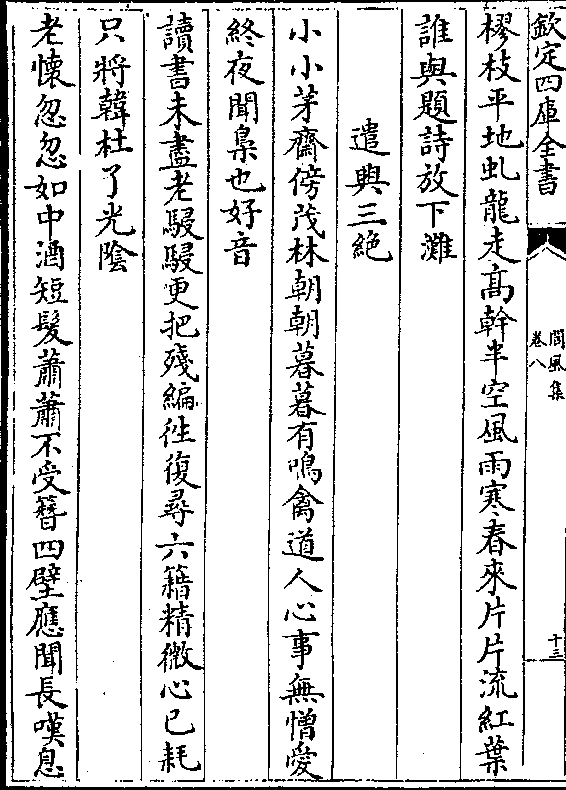 欽定四庫全書
閬風集
卷八
十三
樛枝平地虬龍走高幹半空風雨寒春來片片流紅葉
誰與題詩放下灘
遣興三絶
小小茅齋傍茂林朝朝暮暮有鳴禽道人心事無憎愛
終夜聞梟也好音
讀書未盡老駸駸更把殘編往復尋六籍精微心已耗
只將韓杜了光陰
老懷忽忽如中酒短髮蕭蕭不受簪四壁應聞長嘆息